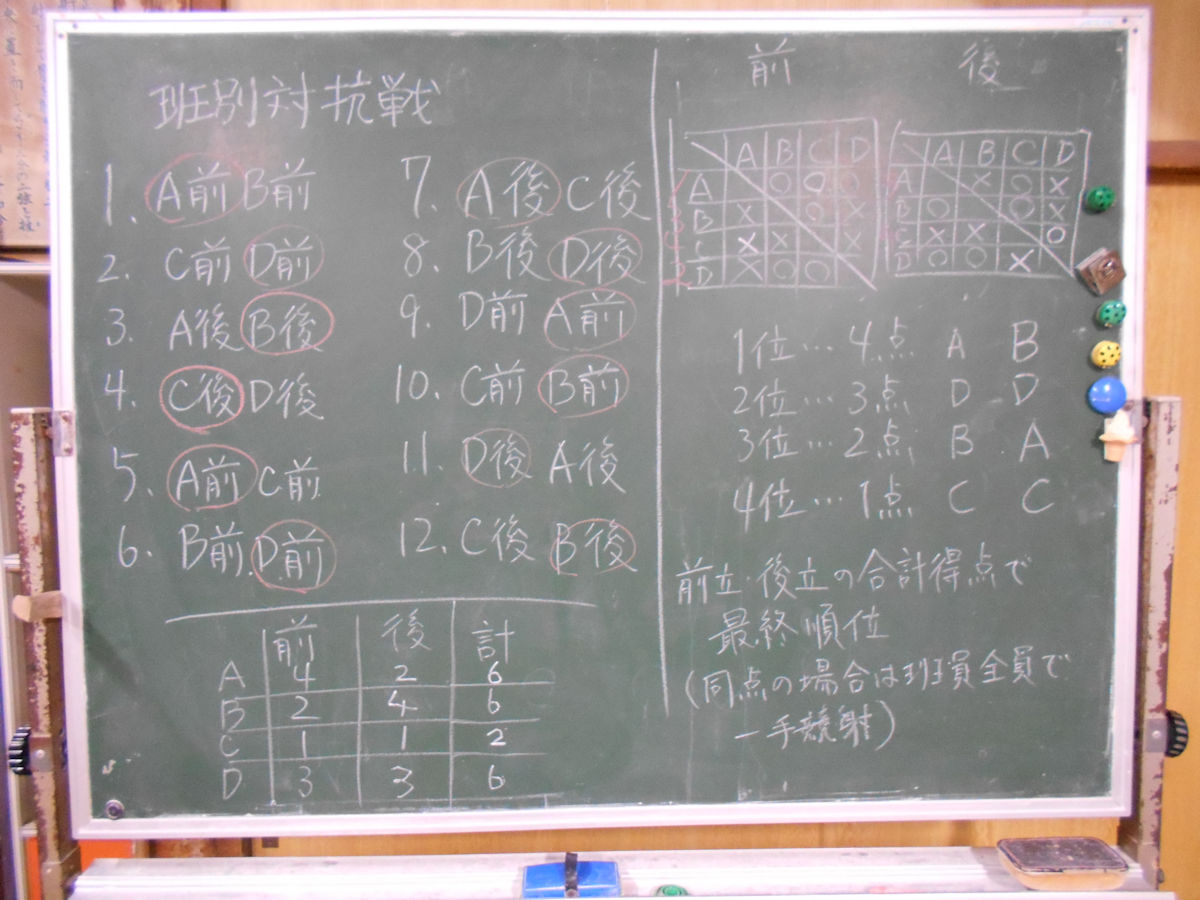 班別対抗戦
1. A前 B前
2. C前 D前
3. A後 B後
4. C後 D後
5. A前 C前
6. B前 D前
7. A後 C後
8. B後 D後
9. D前 A前
10. C前 B前
11. D後 A後
12. C後 B後
前 後 計
A 4 2 6
B 2 4 6
C 1 1 2
D 3 3 6
前
A B C D
A ○ ○ ○
B × ○ ×
C × × ×
D × ○ ○
後
A B C D
A × ○ ×
B ○ ○ ×
C × × ○
D ○ ○ ×
1位…4点 A B
2位…3点 D D
3位…2点 B A
4位…1点 C C
前立・後立の合計得点で
最終順位
(同点の場合は班員全員で
一手競射)